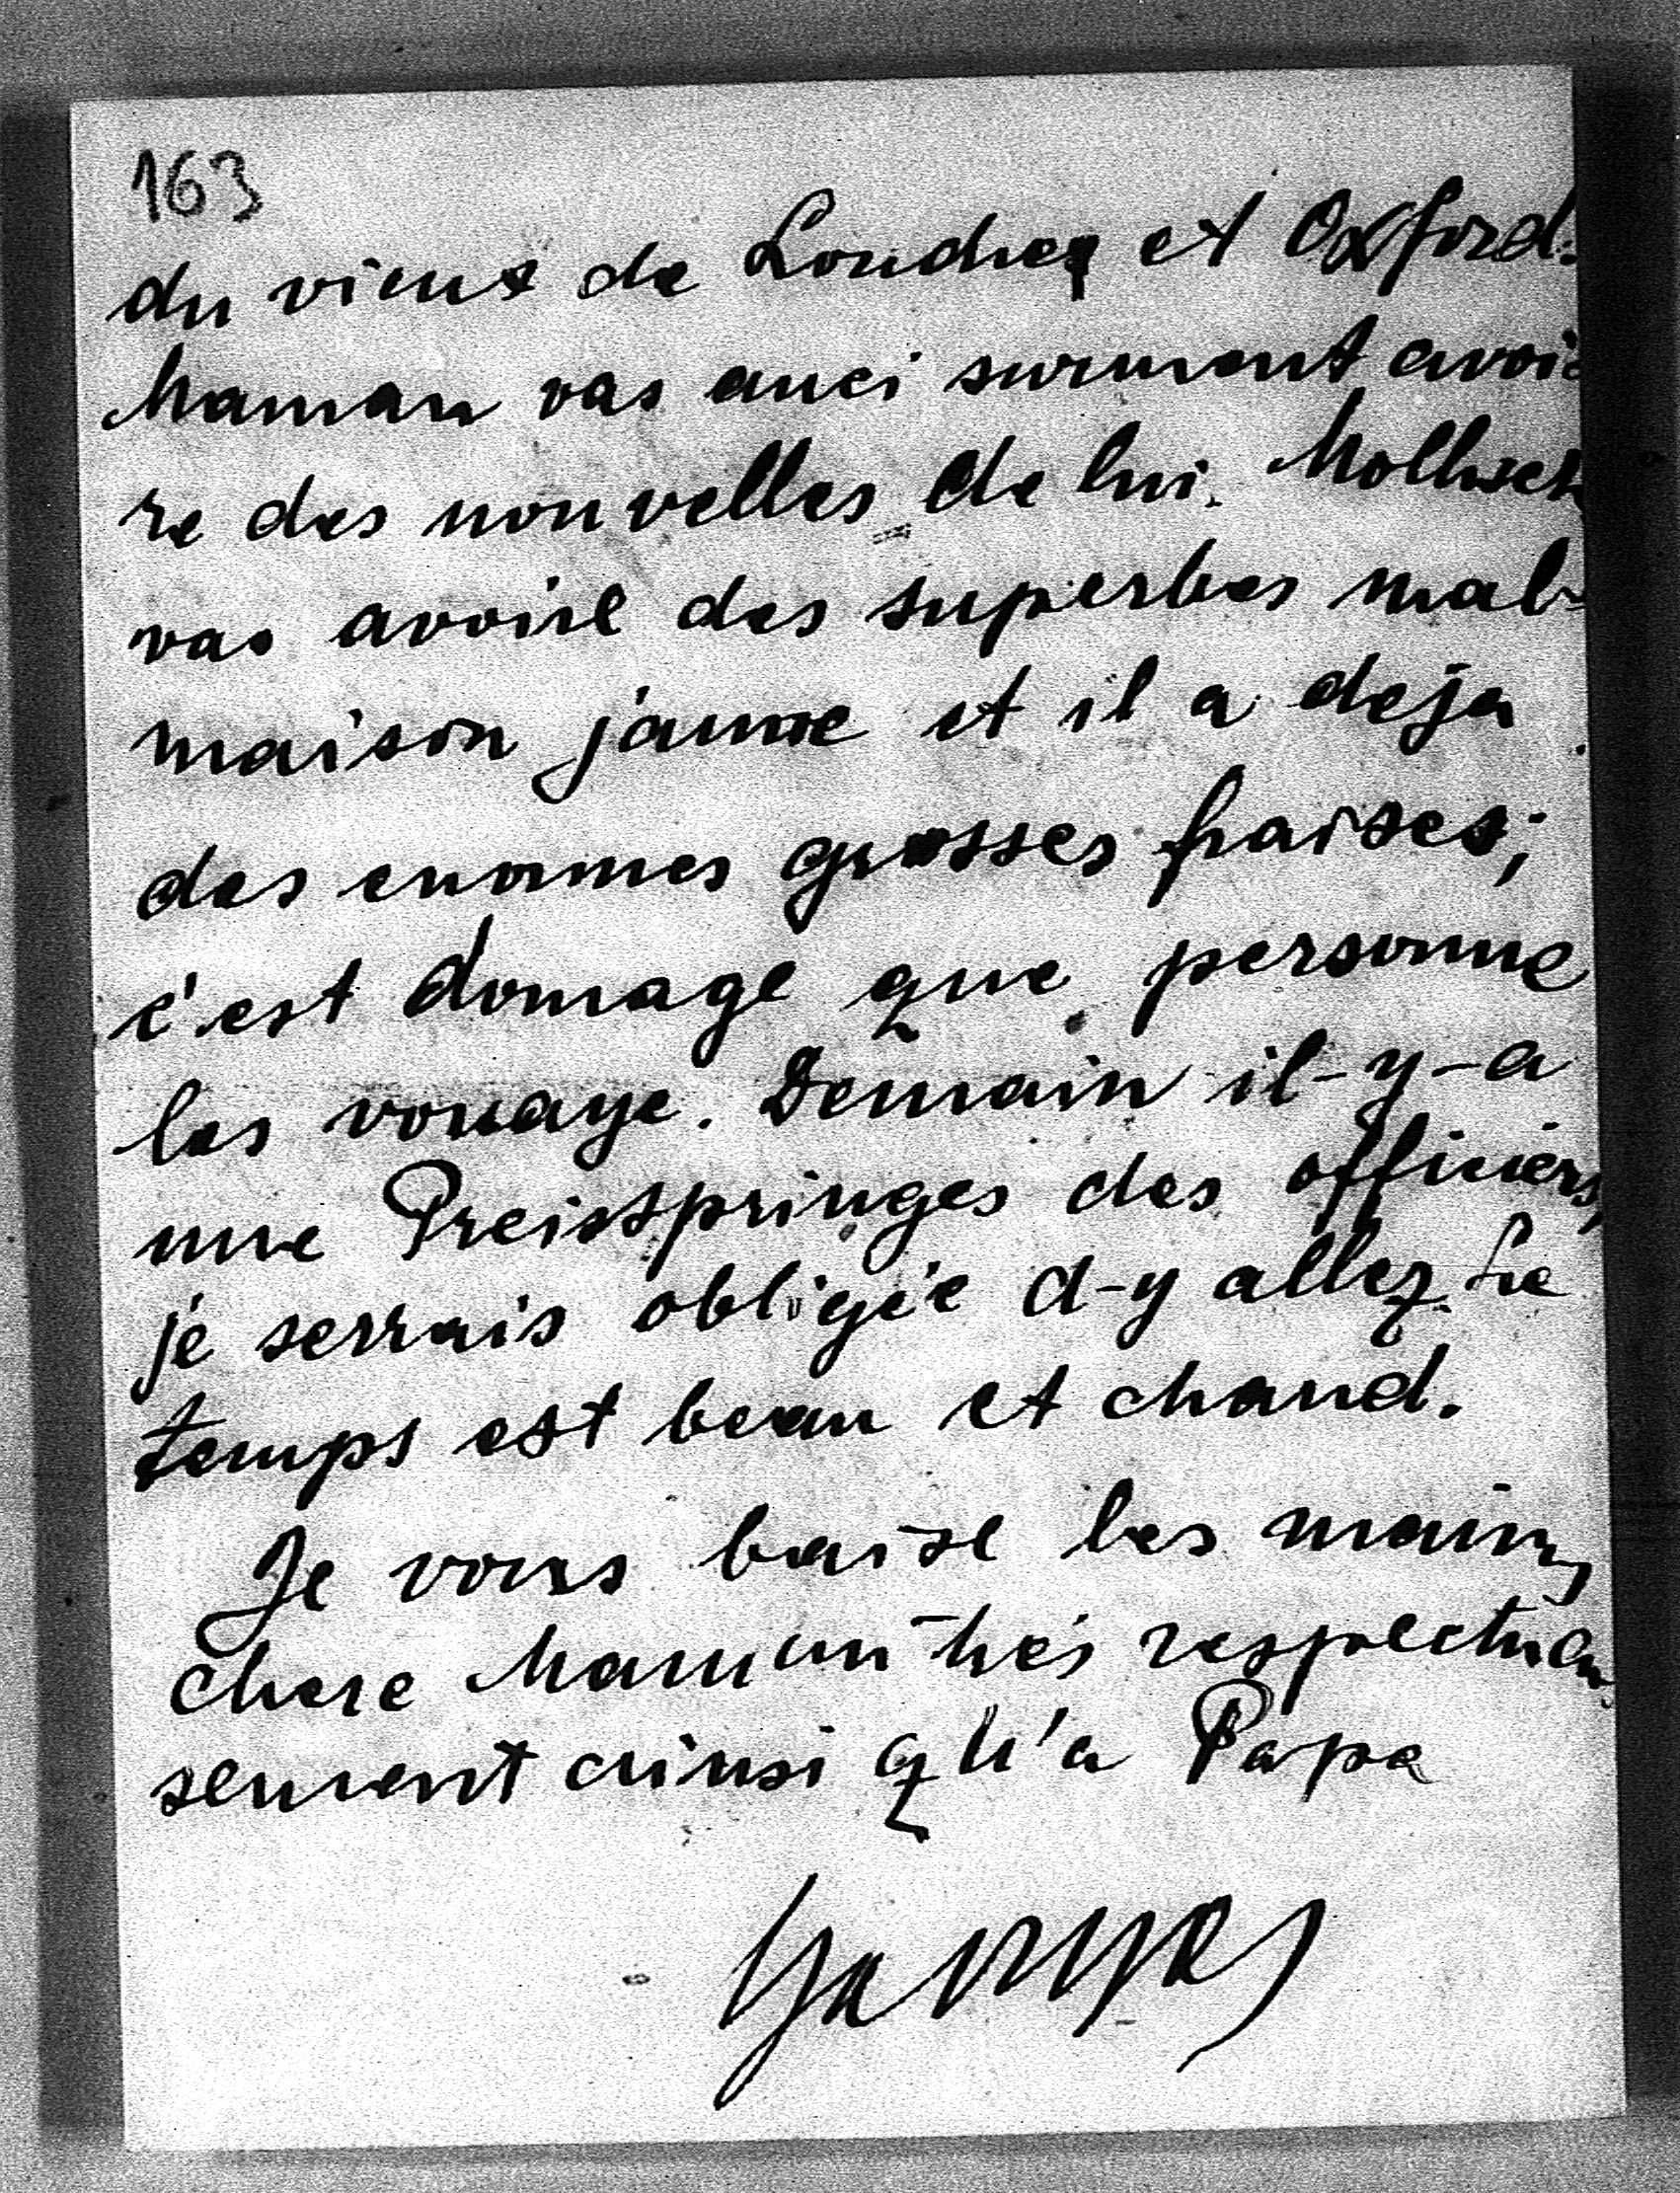 163
du vieux de Londres et Oxford.
Maman vas auci surment avoi-
re des nouvelles de lui. Mollwek
vas avoire des superbes mal-
maison jaune et il a deja
des enormes grosses fraises;
c'est domage que personne
les vouaye. Demain il-y-a
une Preisspringes des officiers,
je serrais obligée d-y allez. Le
temps est beau et chaud.
Je vous baise les mains,
chere Maman trés respectueu-
sement ainsi qu'a Papa
Georges